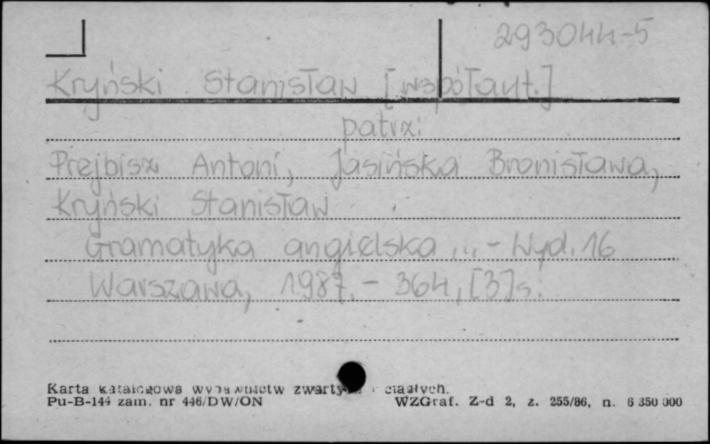 293044-5
Kryński Stanisław [współaut.]
patrz:
Prejbisz Antoni, Jasińska Bronisława,
Kryński Stanisław
Gramatyka angielska ... - Wyd. 16
Warszawa, 1987. - 364, [3] s.
Karta katalogowa wydawnictw zwartych ciągłych.
Pu-B-144 zam. nr 446/DW/ON WZGraf. Z-d 2, z. 255/86, n. 6 350 000